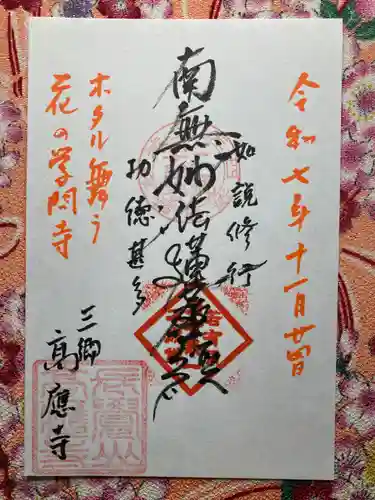 令和七年十一月廿四日
如説修行
南無妙法蓮華経
功徳甚多
ホタル舞う
花の学問寺
三郷
高應寺